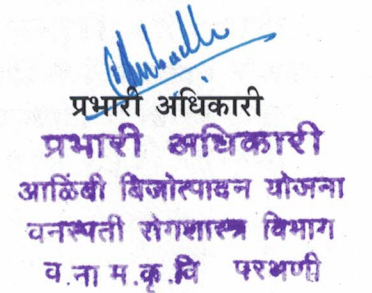 प्रभारी अधिकारी
प्रभारी अधिकारी
आळिंबी बिजोत्पादन योजना
वनस्पती रोगशास्त्र विभाग
व.ना म.कृ.वि परभणी